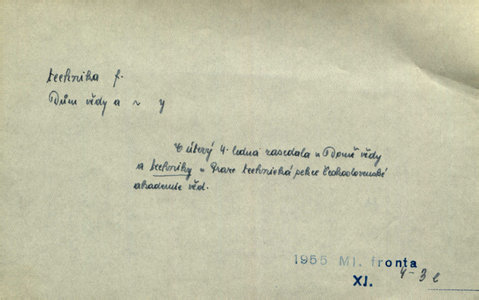 technika f.
Dům vědy a ~ y
V úterý 4. ledna zasedala v Domě vědy
a techniky v Praze technická sekce Československé
akademie věd.
1955 Ml. fronta
XI. 4-3